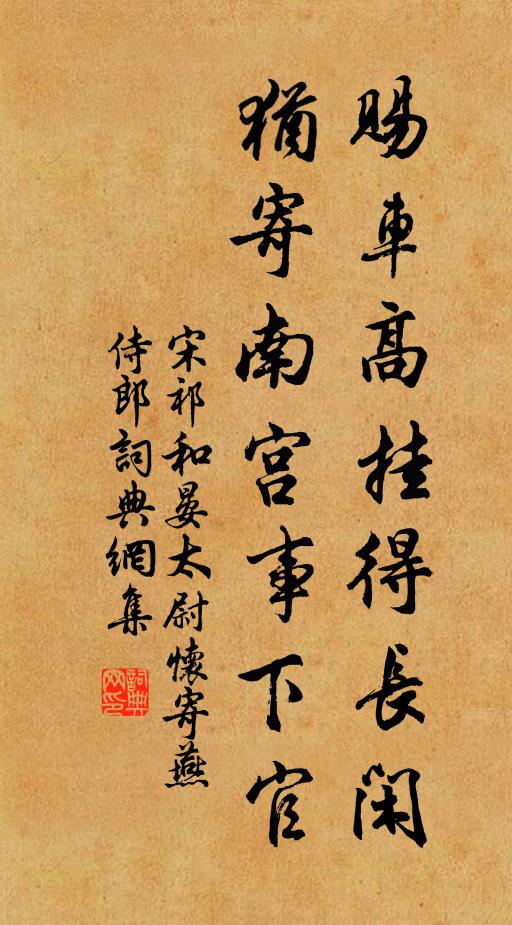 賜車高挂得長閑
猶寄南宫事下官
宋祁和晏太尉懷寄燕
侍郎詞典網集
詞典网印